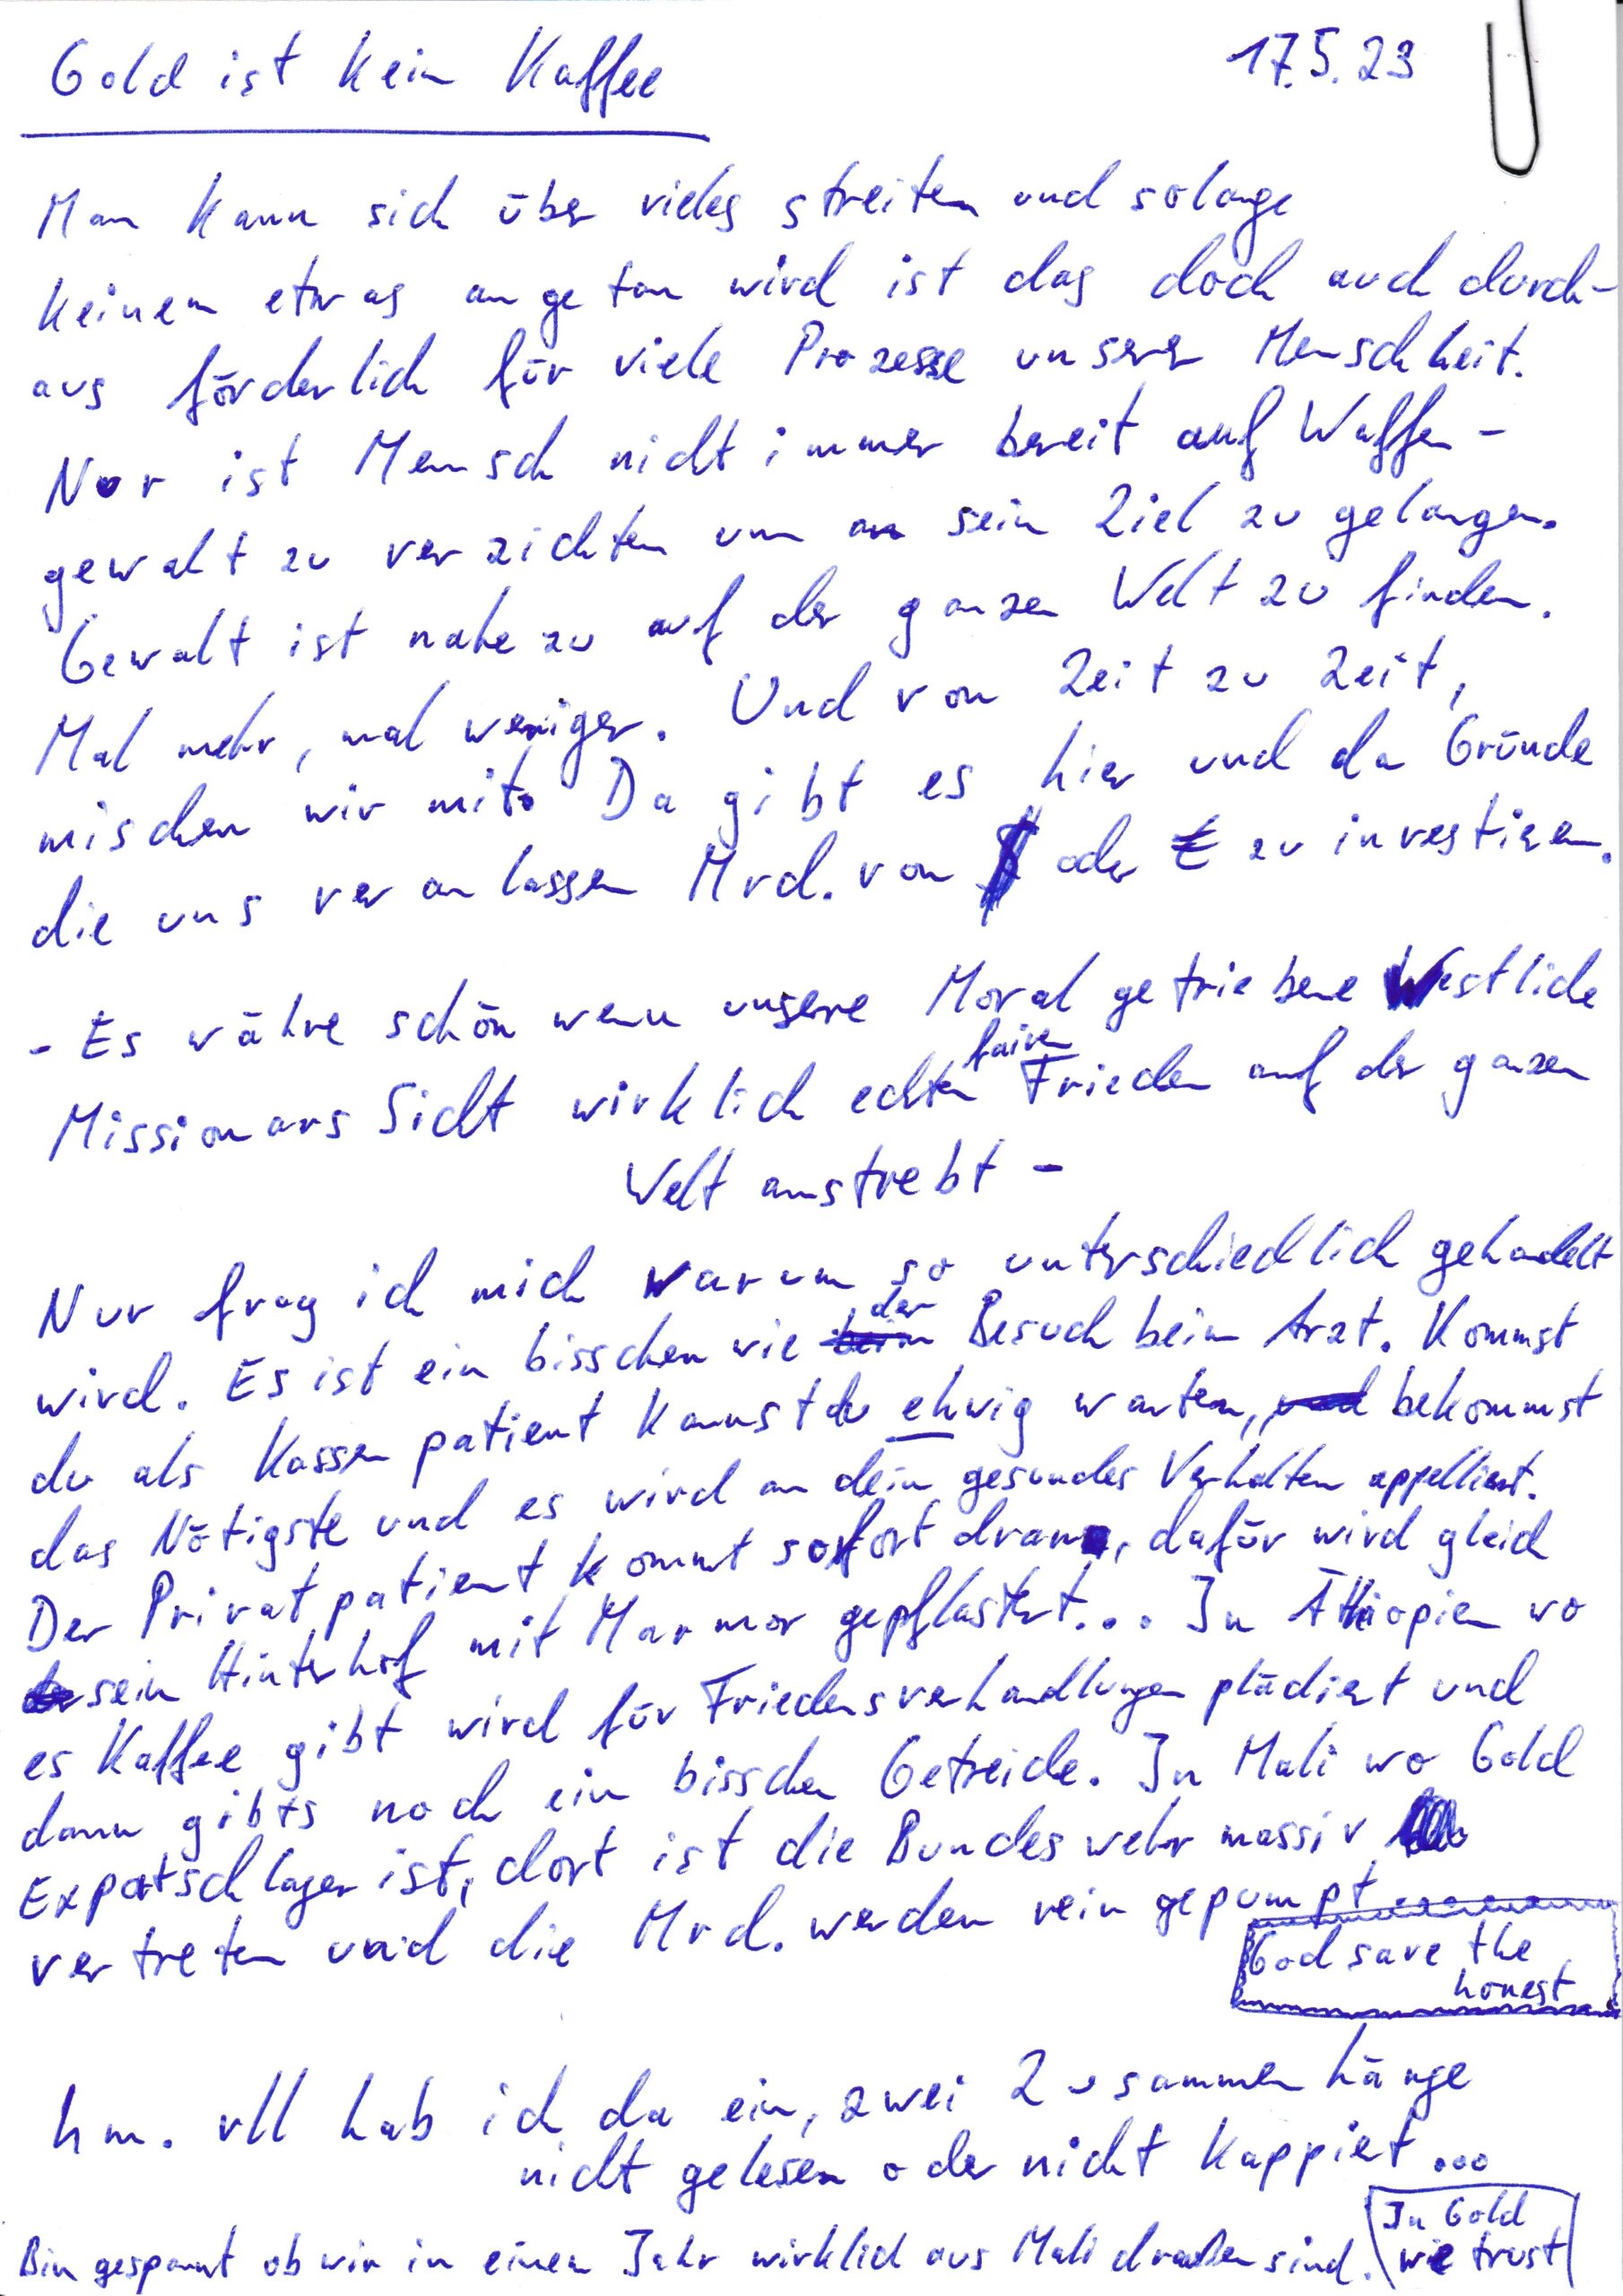 Gold ist kein Kaffee
17.5.23
Man kann sich über vieles streiten und solange
keinem etwas angetan wird ist das doch auch durch-
aus förderlich für viele Prozesse unserer Menschheit.
Nur ist Mensch nicht immer bereit auf Waffen-
gewalt zu verzichten um an sein Ziel zu gelangen.
Gewalt ist nahezu auf der ganzen Welt zu finden.
Mal mehr, mal weniger. Und von Zeit zu Zeit,
mischen wir mit. Da gibt es hier und da Gründe
die uns veranlassen Mrd. von $ oder € zu investieren.
- Es währe schön wenn unsere Moral getriebene Westliche
Missionars Sicht wirklich echten fairen Frieden auf der ganzen
Welt anstrebt -
Nur frag ich mich warum so unterschiedlich gehandelt
wird. Es ist ein bisschen wie beim der Besuch beim Arzt. Kommst
du als Kassenpatient kannst du ehwig warten, und bekommst
das Nötigste und es wird an dein gesundes Verhalten appelliert.
Der Privatpatient kommt sofort dran, dafür wird gleich
sein Hinterhof mit Marmor gepflastert... In Äthiopien wo
es Kaffee gibt wird für Friedensverhandlungen plädiert und
dann gibts noch ein bisschen Getreide. In Mali wo Gold
Exportschlager ist, dort ist die Bundeswehr massiv
vertreten und die Mrd. werden rein gepumpt
God save the
honest
hm. vll hab ich da ein, zwei Zusammenhänge
nicht gelesen oder nicht kappiert...
Bin gespannt ob wir in einem Jahr wirklich aus Mali draußen sind.
In Gold
we trust